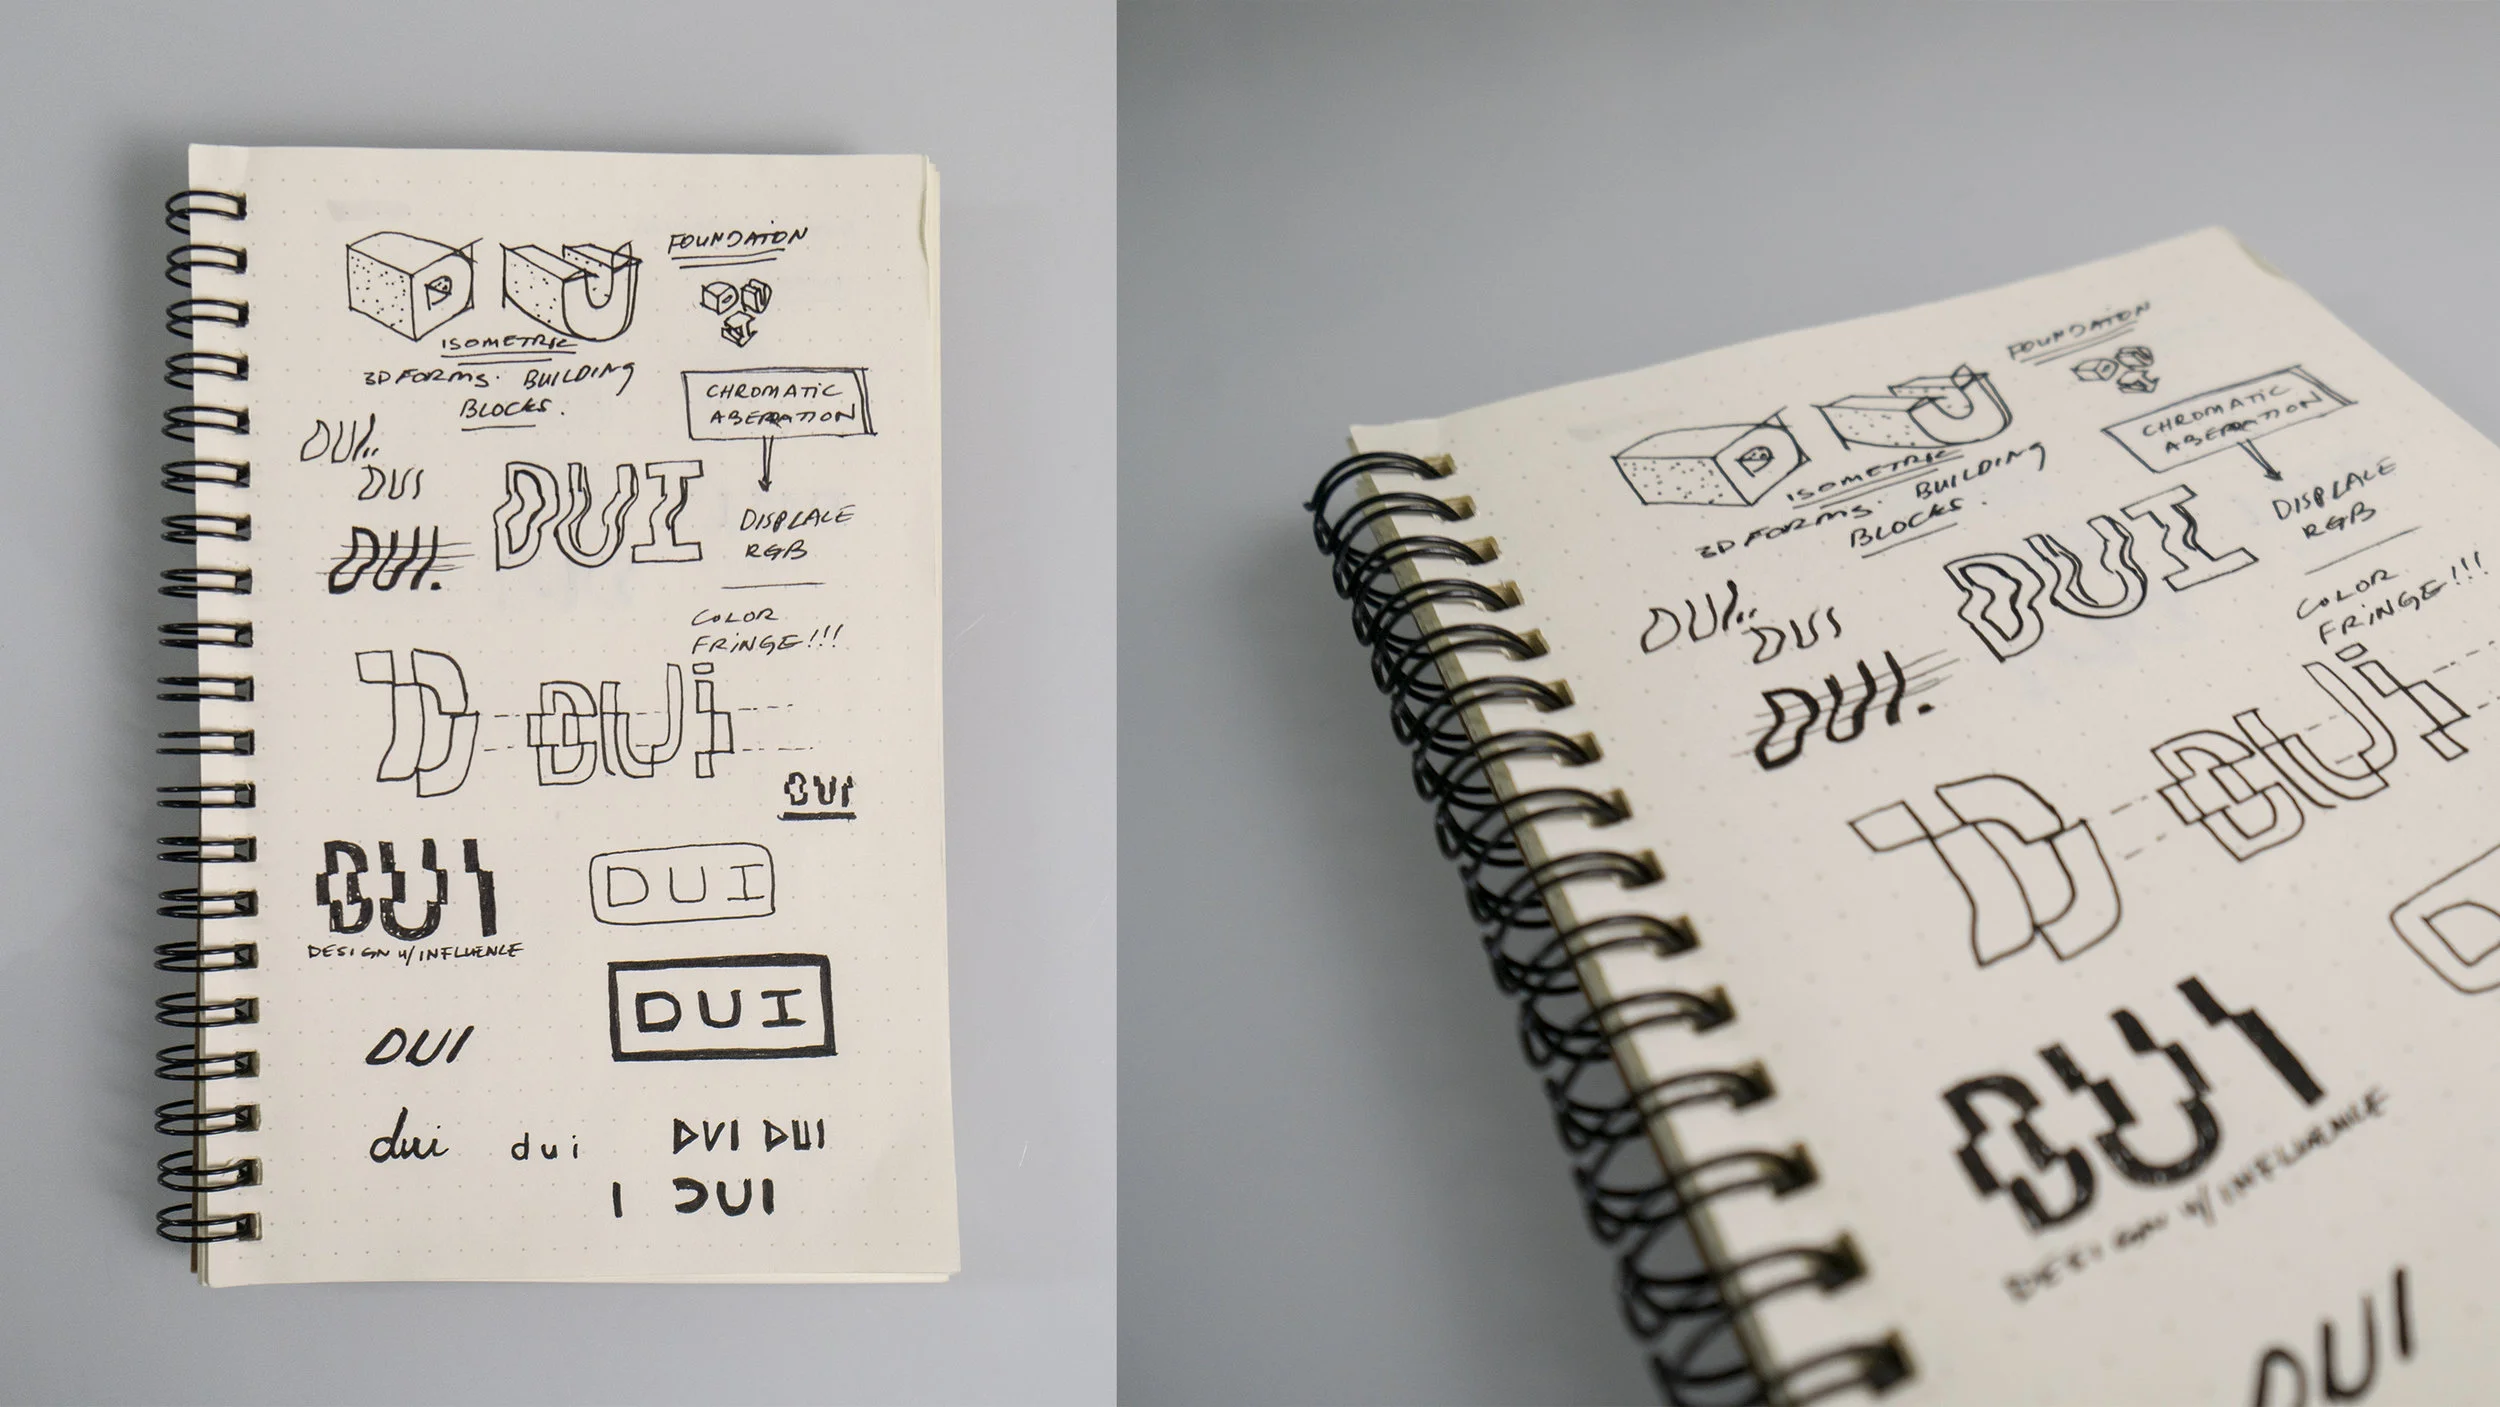 FOUNDATON
D U
ISOMETRIC
3D FORMS. BUILDING
BLOCKS.
CHROMATIC
ABERRATION
DUI..
DUI
DUI.
DUI
DISPLACE
RGB
COLOR
FRINGE!!!
D DUi
DUI
DUI
DESIGN W/ INFLUENCE
DUI
DUI
DUI
dui
dui
DVI DUI
I DUI
FOUNDATON
D U
ISOMETRIC
3D FORMS. BUILDING
BLOCKS.
CHROMATIC
ABERRATION
DISPLACE
RGB
DUI..
DUI
DUI
DUI.
COLOR
FRINGE!!!
D DUi
D
DUI
DESIGN W/ INFLUENCE
DUI